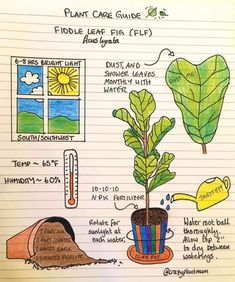 PLANT CARE GUIDE
FIDDLE LEAF FIG (FLF)
Ficus lyrata
6-8 HRS BRIGHT LIGHT
SOUTH/SOUTHWEST
DUST, AND
SHOWER LEAVES
MONTHLY WITH
WATER.
DUST ME
TEMP ~ 65°F
HUMIDITY ~ 60%
10-10-10
NPK FERTILIZER
Rotate for
sunlight at
each water.
THIRSTY??
Water root ball
thoroughly.
Allow top 2"
to dry between
waterings.
CLAY POT
@crazyplantmum